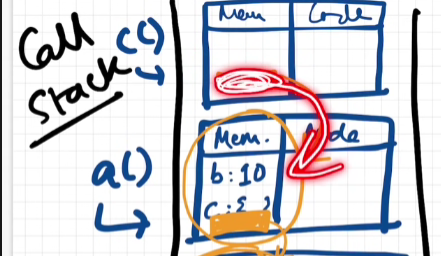 Call Stack
c()
Mem Code
a()
Mem. Code
b:10
c:{ }